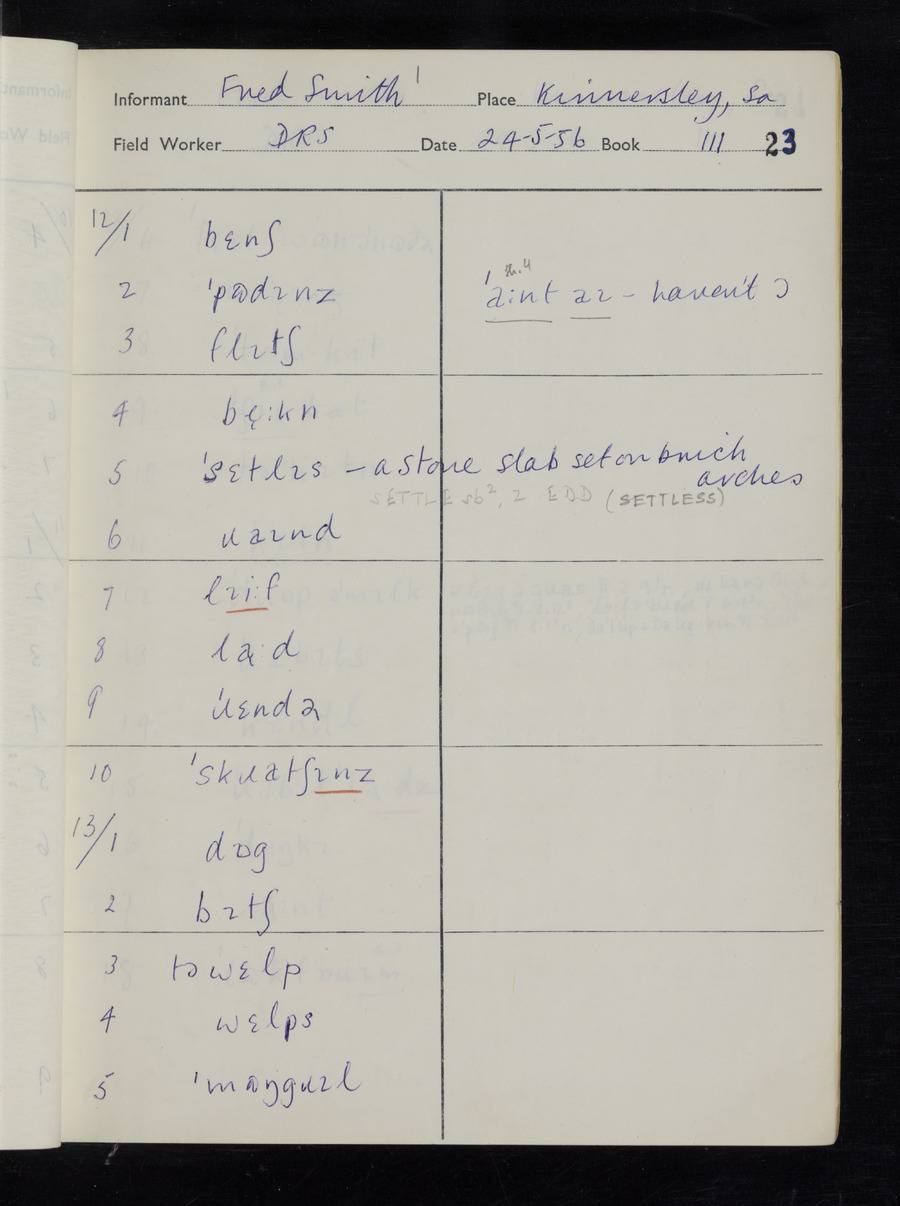 Informant Fred Smith Place Kinnersley, Sa
Field Worker DRS Date 24-5-56 Book III 23
12/1 bɛnʃ
2 ˈpʊdɪnz
ˈaːint aɪ - haven't I
3 flɪtʃ
4 bę:kn
5 ˈsɛtlɪs - a stone slab set on brick
arches
SETTLE sb², 2 EDD (SETTLESS)
6 ɹaɪnd
7 lɪi:f
8 la:d
9 ˈɹɛndə
10 ˈskɹatʃɪnz
13/1 dɒg
2 bɪtʃ
3 tə wɛlp
4 wɛlps
5 ˈmʊŋgɹɪl